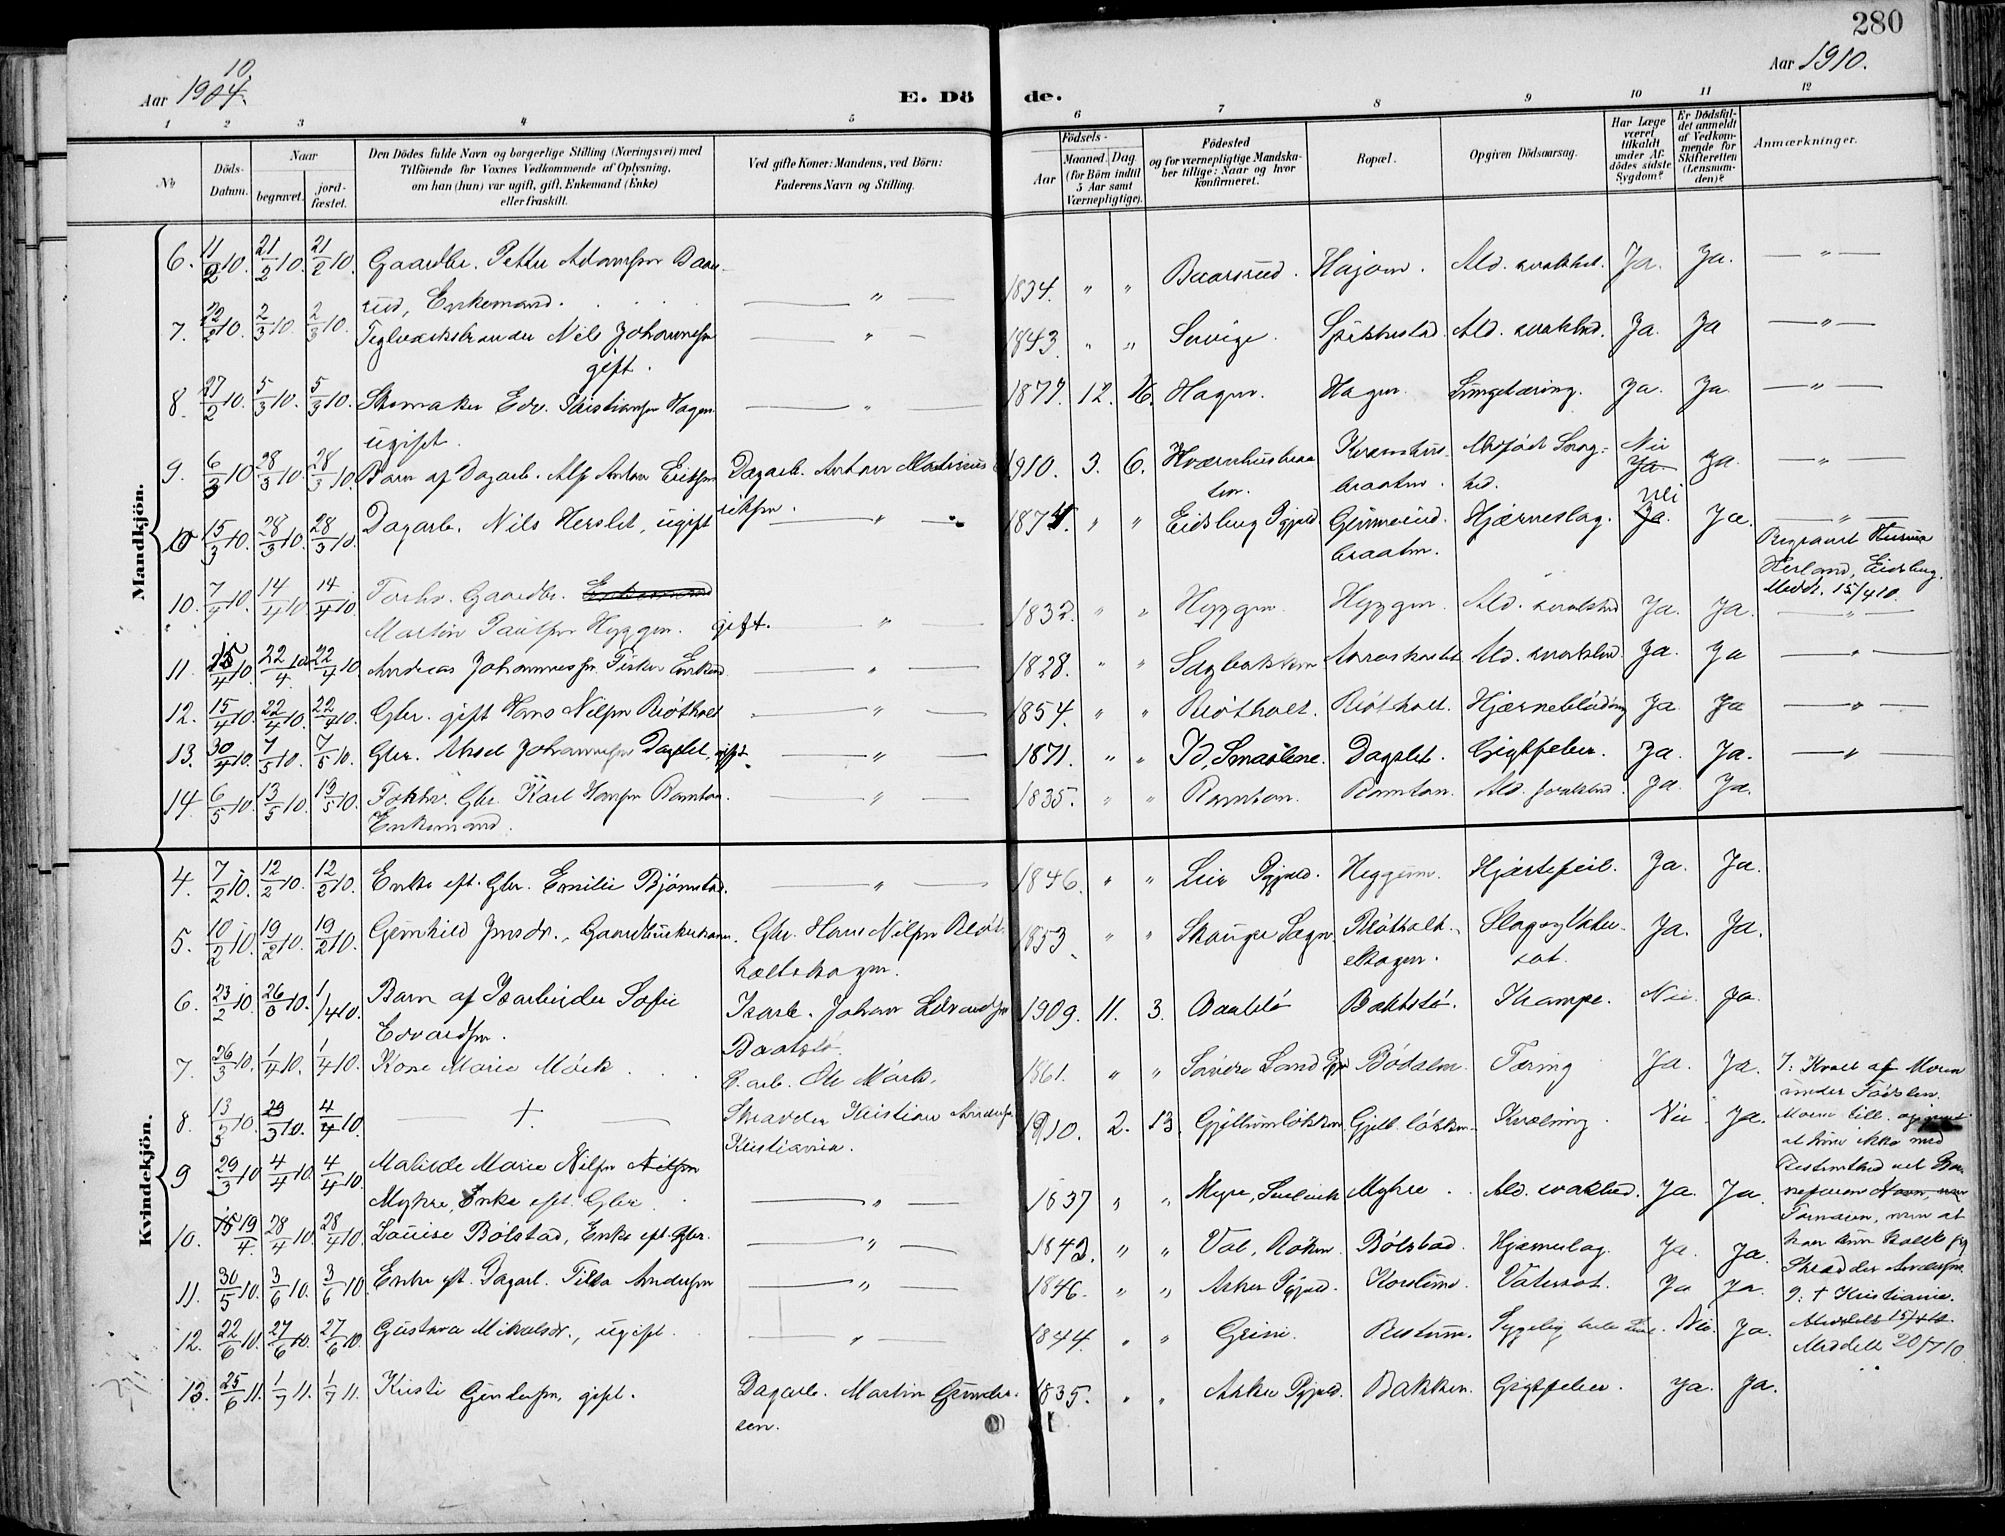 280
Aar 1904. 10.
E. Döde.
Aar 1910.
1 2 3 4 5 6 7 8 9 10 11 12
No
Döds-Datum.
Naar
begravet.
jord-fæstet.
Den Dödes fulde Navn og borgerlige Stilling (Næringsvei) med
Tilföiende for Voxnes Vedkommende af Oplysning,
om han (hun) var ugift, gift, Enkemand (Enke)
eller fraskilt.
Ved gifte Koner: Mandens, ved Börn:
Faderens Navn og Stilling.
Födsels-
Aar
Maaned. Dag.
(for Börn indtil
5 Aar samt
Værnepligtige).
Födested
og for værnepligtige Mandska-
ber tillige: Naar og hvor
konfirmeret.
Bopæl.
Opgiven Dödsaarsag.
Har Læge
været
tilkaldt
under Af-
dödes sidste
Sygdom?
Er Dödsfal-
det anmeldt
af Vedkom-
mende for
Skifteretten
(Lensman-
den)?
Anmærkninger.
Mandkjön.
6. 11/2 10. 21/2 10. 21/2 10. Gaardbr. Petter Adamsen Baars-
rud, Enkemand. — " — 1834. " " Baarsrud. Hajom. Ald. svakhet. Ja. Ja. — " —
7. 22/2 10. 2/3 10. 2/3 10. Teglverksbrænder Nils Johannesen
gift. — " — 1843. " " Sverige. Spikkestad. Ald. svakhed. Ja. Ja — " —
8. 27/2 10. 5/3 10. 5/3 10. Skomaker Edv. Kristiansen Hagen
ugift. — " 1877. 12. 16. Hagen. Hagen. Lungetæring. Ja. Ja. — " —
9. 6/3 10 28/3 10. 28/3 10. Barn af Dagarb. Alf Anton Eriksen Dagarb. Anton Martinius E-
riksen. 1910. 3. 6. Kværnhusbraa
ten. Kvernhus-
braaten. Nei Ja Ja. — " —
10 15/3 10. 28/3 10. 28/3 10. Dagarb. Nils Herslet, ugift — " — 1874. " " Eidsberg Pgjeld. Grimsrud-
braaten. Hjærneslag. Nei Ja. Ja. — " —
Begravet
Herland, Eidsberg.
Meddt. 15/4 10.
10. 7/4 10. 14/4 10. 14/4 10. Forhv. Gaardbr. Enkemand
Martin Paulsen Hyggen. gift. — " — 1832. " " Hyggen. Hyggen. Ald. svakhed Ja. Ja. — " —
11. 15/4 10. 22/4 10. 22/4 10. Andreas Johannessen Fisker Enkem. — " — 1828. " " Sagbakken Ald. svakhed. Ja. Ja — " —
12. 15/4 10. 22/4 10. 22/4 10. Gbr. gift Hans Nilsen Rötholt — " — 1854. " " Rötholt. Rötholt. Hjærneblödning Ja Ja — " —
13. 30/4 10. 7/5 10. 7/5 10. Gbr. Aksel Johannesen Dagslet, gift. — " — 1871. " " Id, Smaalene. Dagslet. Gigtfeber. Ja. Ja. — " —
14 6/5 10. 13/5 10. 13/5 10. Forhv. Gbr. Karl Hansen Ramton.
Enkemand. — " — 1835. " " Ramton. Ramton. Ald. svakhed. Ja. Ja.
Kvindekjön.
4. 7/2 10. 12/2 10. 12/2 10. Enke eft. Gbr. Emilie Björnstad. — " — 1846. " " Lier Pgjeld. Heggum. Hjærtefeil. Ja. Ja.
5. 10/2 10. 19/2 10. 19/2 10. Gunhild Jensdr., Gaardbrukerkone. Gbr. Hans Nilsen Röt-
holtskogen. 1853. " " Skauger Sogn Rötholt-
skogen. Ja. Ja.
6. 23/2 10. 26/3 10. 1/4 10. Barn af Isarbeider Sofie
Edvardsen. Isarb. Johan Edvardsen
Baatstö. 1909. 11. 3. Baatstö Baatstö. Krampe. Nei Ja.
7. 26/3 10. 1/4 10. 1/4 10. Kone Marie Mörk Ole Mörk. 1861. " " Söndre Land Pgj Bödalen. Tæring Ja. Ja. 7: Kvalt af Moren
under Födslen.
8. 13/3 10. 29/3 10. 4/4 10. — † — Skrædder Kristian Andersen
Kristiania. 1910. 2. 13. Gjellumlökken Gjell. lökken. Kvælning. Nei Ja. at hun ikke med
Bestemthed vet Bar-
nefaren Navn, men
9 29/3 10 4/4 10. 4/4 10. Matilde Marie Nilsen Nilsen
Myhre, Enke eft. Gbr. — " — 1837 " " Myhre. Ald. svakhed. Ja. Ja.
10. 15 19/4 28/4 10. 28/4 10. Louise Bölstad, Enke eft. Gbr. — " — 1842. " " Röken. Bölstad. Hjærneslag. Ja. Ja.
Skrædder Andersen.
11. 30/5 10. 3/6 10. 3/6 10 Enke eft. Dagarb. Tilla Andersen — " — 1846. " " Asker Pgjeld. Vatersot. Ja Ja. 9: † Kristiania.
12. 22/6 10. 27/6 10. 27/6 10. Gustava Mikalsdr., ugift. — " — 1844. " " Grini. Nei. Ja. Meddelt 15/4 10.
Meddelt 20/7 10
13. 25/6 11. 1/7 11. 1/7 11. Kristi Gundersen, gift. Dagarb. Martin Gunder-
sen. 1835. " " Asker Pgjeld. Bakken. Gigtfeber. Ja. Ja.